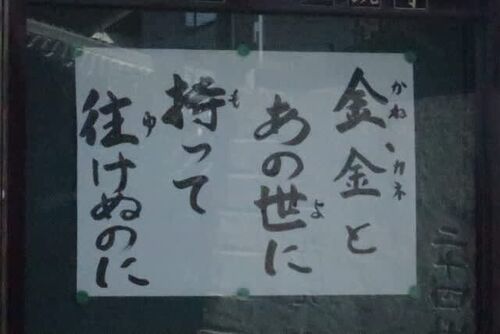 金、金と
かね カネ
あの世に
よ
持って
も
往けぬのに
ゆ